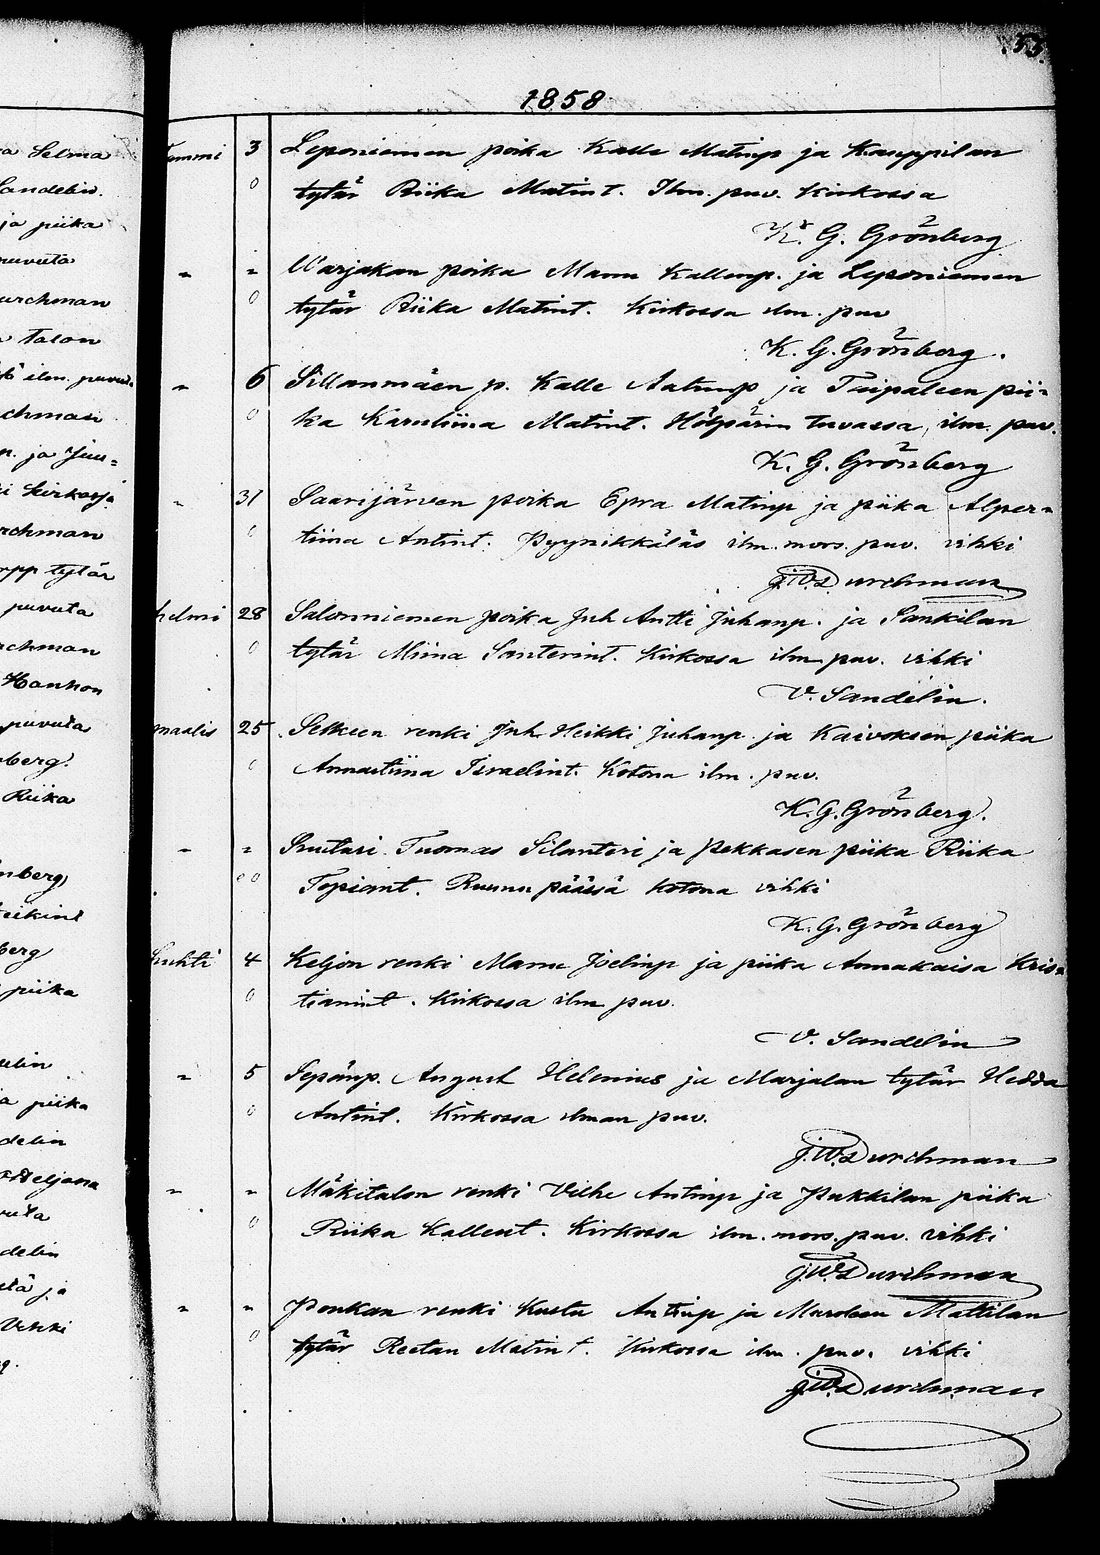 53.
1858
a Selma
Sandelin.
ja piika
puvuta
urchman
Talon
ilm. puvut.
chman
n. ja Juu=
Kirkossa
rchman
tytär
puvuta
rchman
Hanhon
puvuta
berg.
Riika
nberg
eikint
berg
piika
elin
a piika
delin
Weljana
vuta
delin
ja
Vihki
Tammi 3 Leponiemen poika Kalle Matinp ja Kauppilan
tytär Riika Matint. Ilm. puv. Kirkossa
K. G. Grönberg
" " Warjakan poika Manu Kallenp. ja Leponiemen
tytär Riika Matint. Kirkossa ilm. puv
K. G. Grönberg.
" 6 Sillanmäen p. Kalle Antinp ja Taipaleen pii=
ka Karuliina Matint. Hölpärin tuvassa, ilm. puv.
K. G. Grönberg
" 31 Saarijärven poika Epra Matinp ja piika Alper=
tiina Antint. Pyynikkäläs ilm. mors. puv. vihki
J.W. Durchman
helmi 28 Salonniemen poika Juh Antti Juhanp. ja Sankilan
tytär Miina Santerint. Kirkossa ilm puv. vihki
V. Sandelin.
maalis 25 Selkeen renki Juh Heikki Juhanp. ja Kaivoksen piika
Annastiina Israelint. Kotona ilm. puv.
K. G. Grönberg.
" " Suutari Tuomas Silanteri ja Pekkasen piika Riika
Topiant. Ruunu päässä kotona vihki
K. G. Grönberg
huhti 4 Keljon renki Manu Joelinp ja piika Annakaisa Kris=
tianint. Kirkossa ilm puv.
V. Sandelin
" 5 Sepänp. August Helenius ja Marjalan tytär Hedda
Antint. Kirkossa ilman puv.
J.W. Durchman
" " Mäkitalon renki Vilhe Antinp ja Pukkilan piika
Riika Kallent. Kirkossa ilm. mors. puv. vihki
J.W. Durchman
" " Ponkan renki Kustu Antinp ja Mattilan
tytär Reetan Matint. Kirkossa ilm. puv. vihki
J.W. Durchman